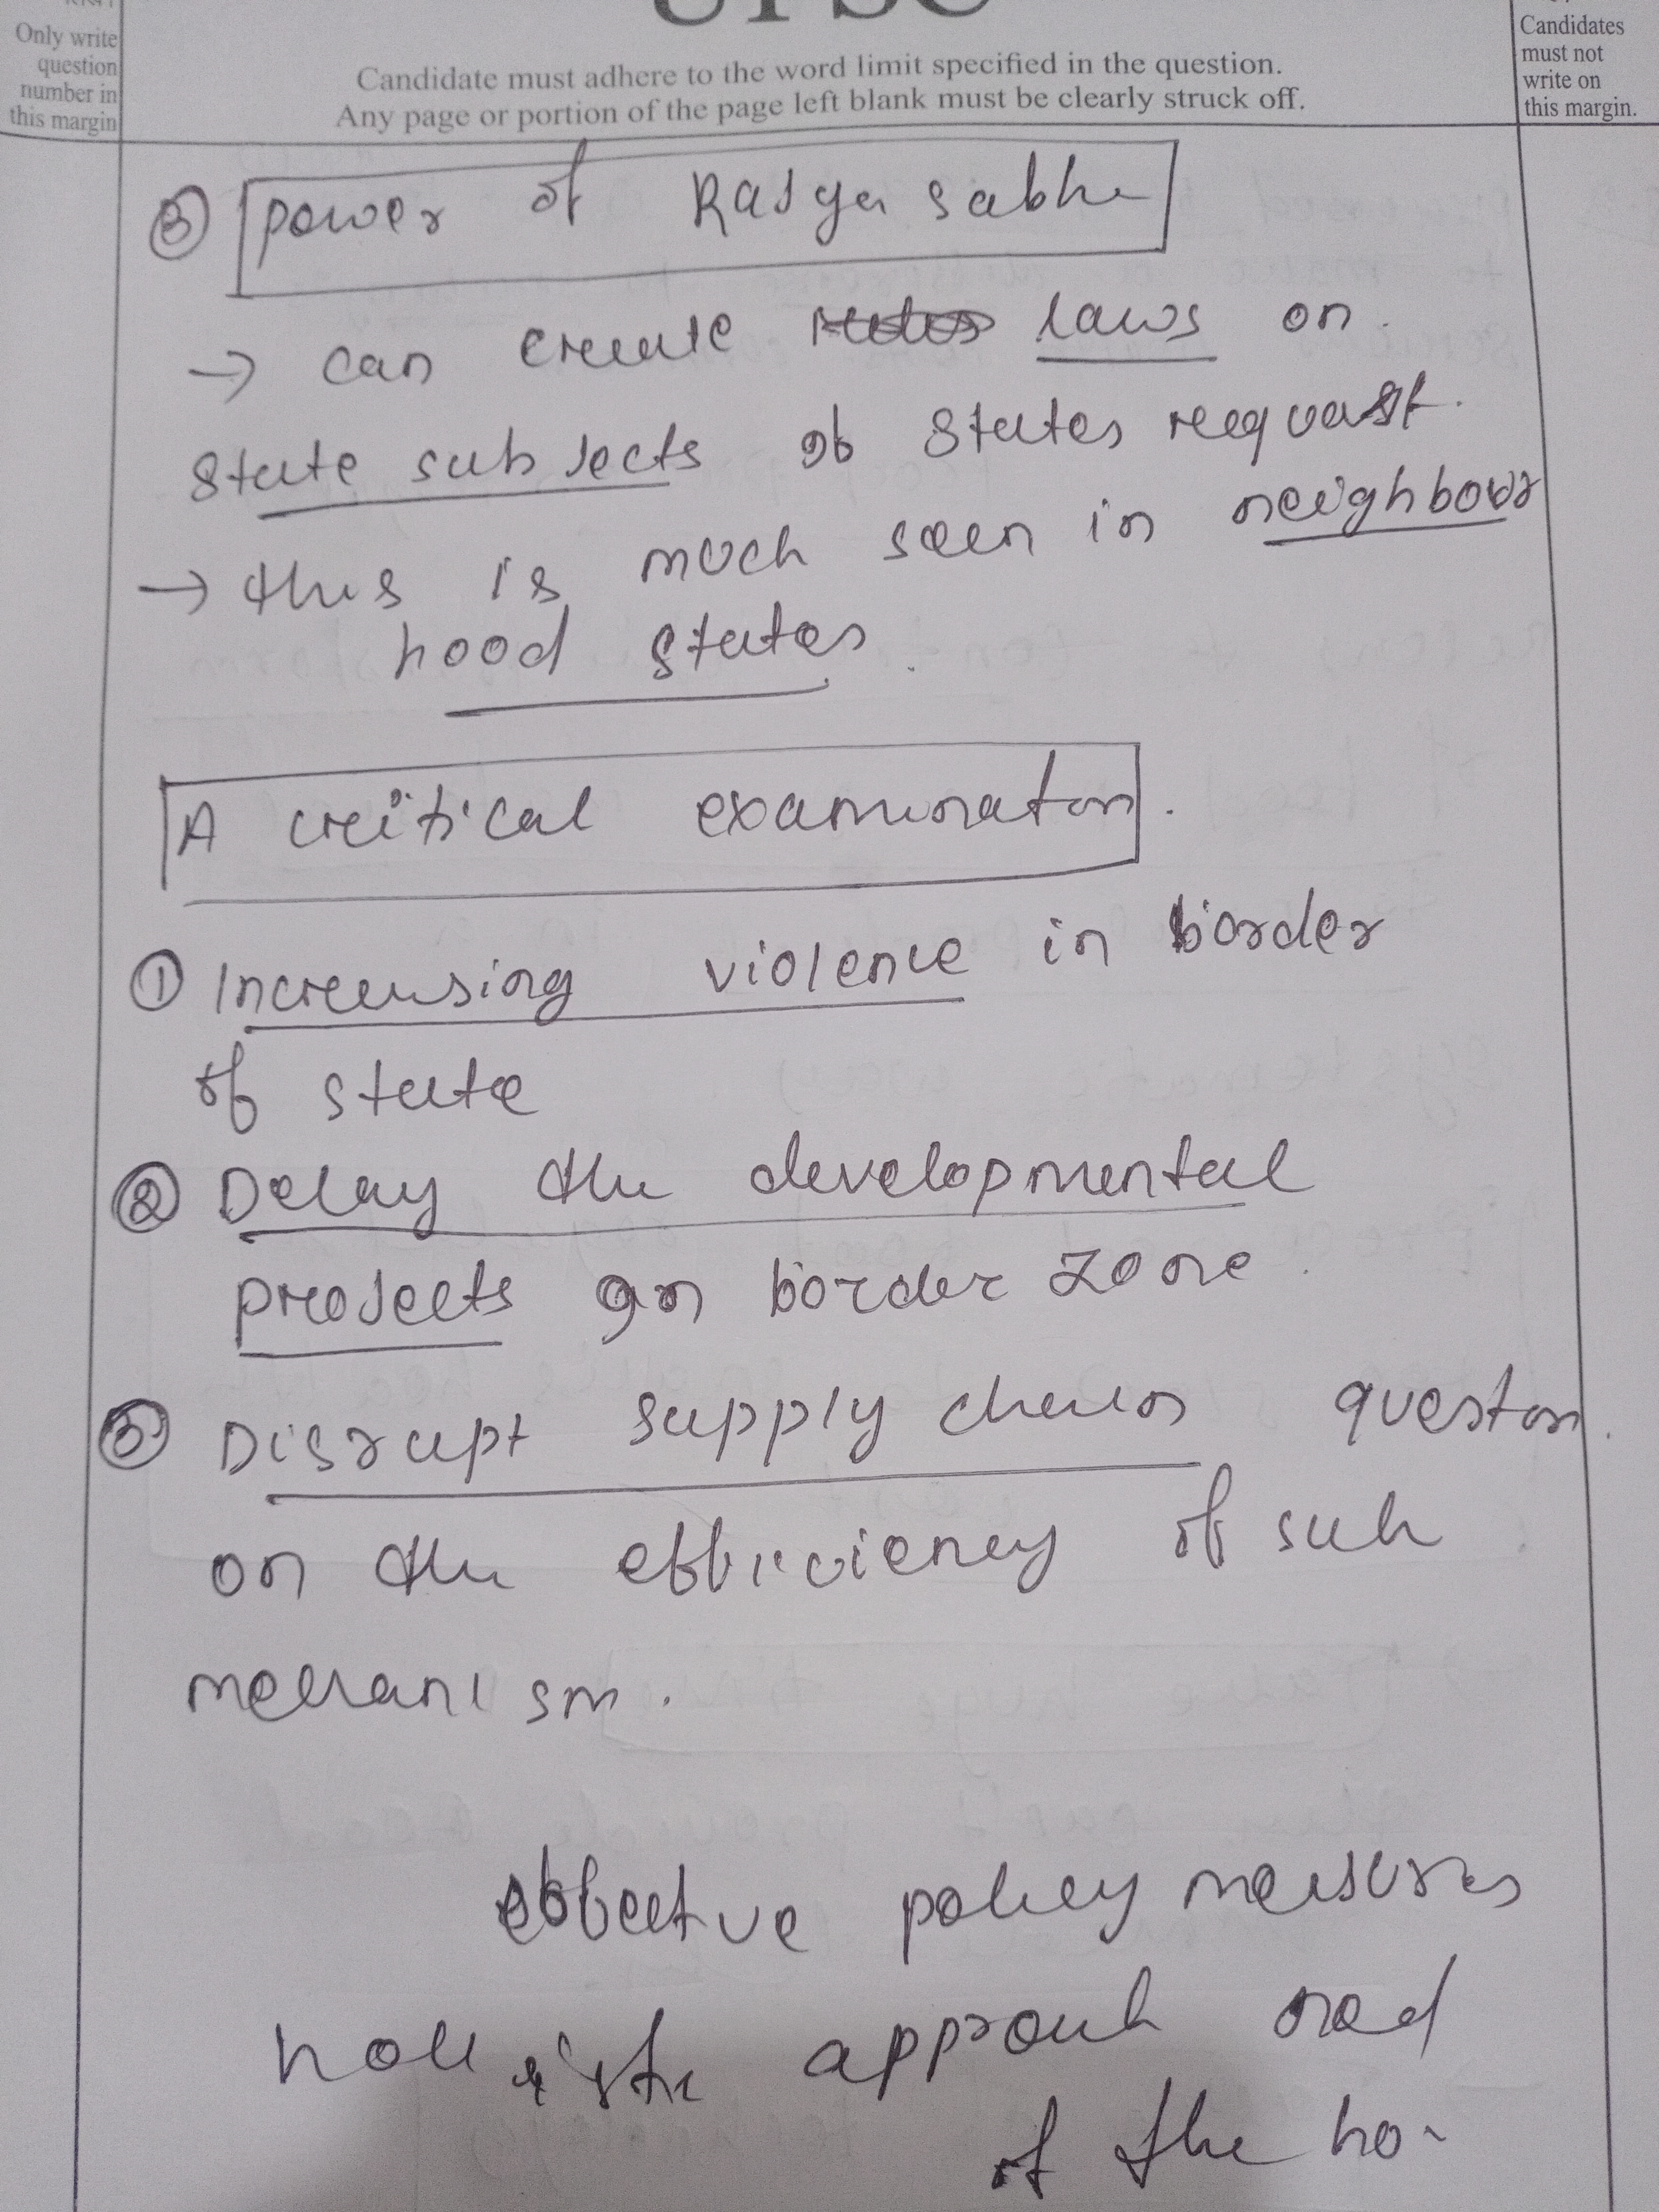 UPSC
Only write
question
number in
this margin
Candidate must adhere to the word limit specified in the question.
Any page or portion of the page left blank must be clearly struck off.
Candidates
must not
write on
this margin.
③ power of Rajya sabha
→ can create laws on
state subjects if states request.
→ this is much seen in neighbour
hood states.
A critical examination.
① Increasing violence in border
of state
② Delay the developmental
projects in border zone.
③ Disrupt supply chain question
on the efficiency of such
mechanism.
effective policy measures
holistic approach need
of the ho-